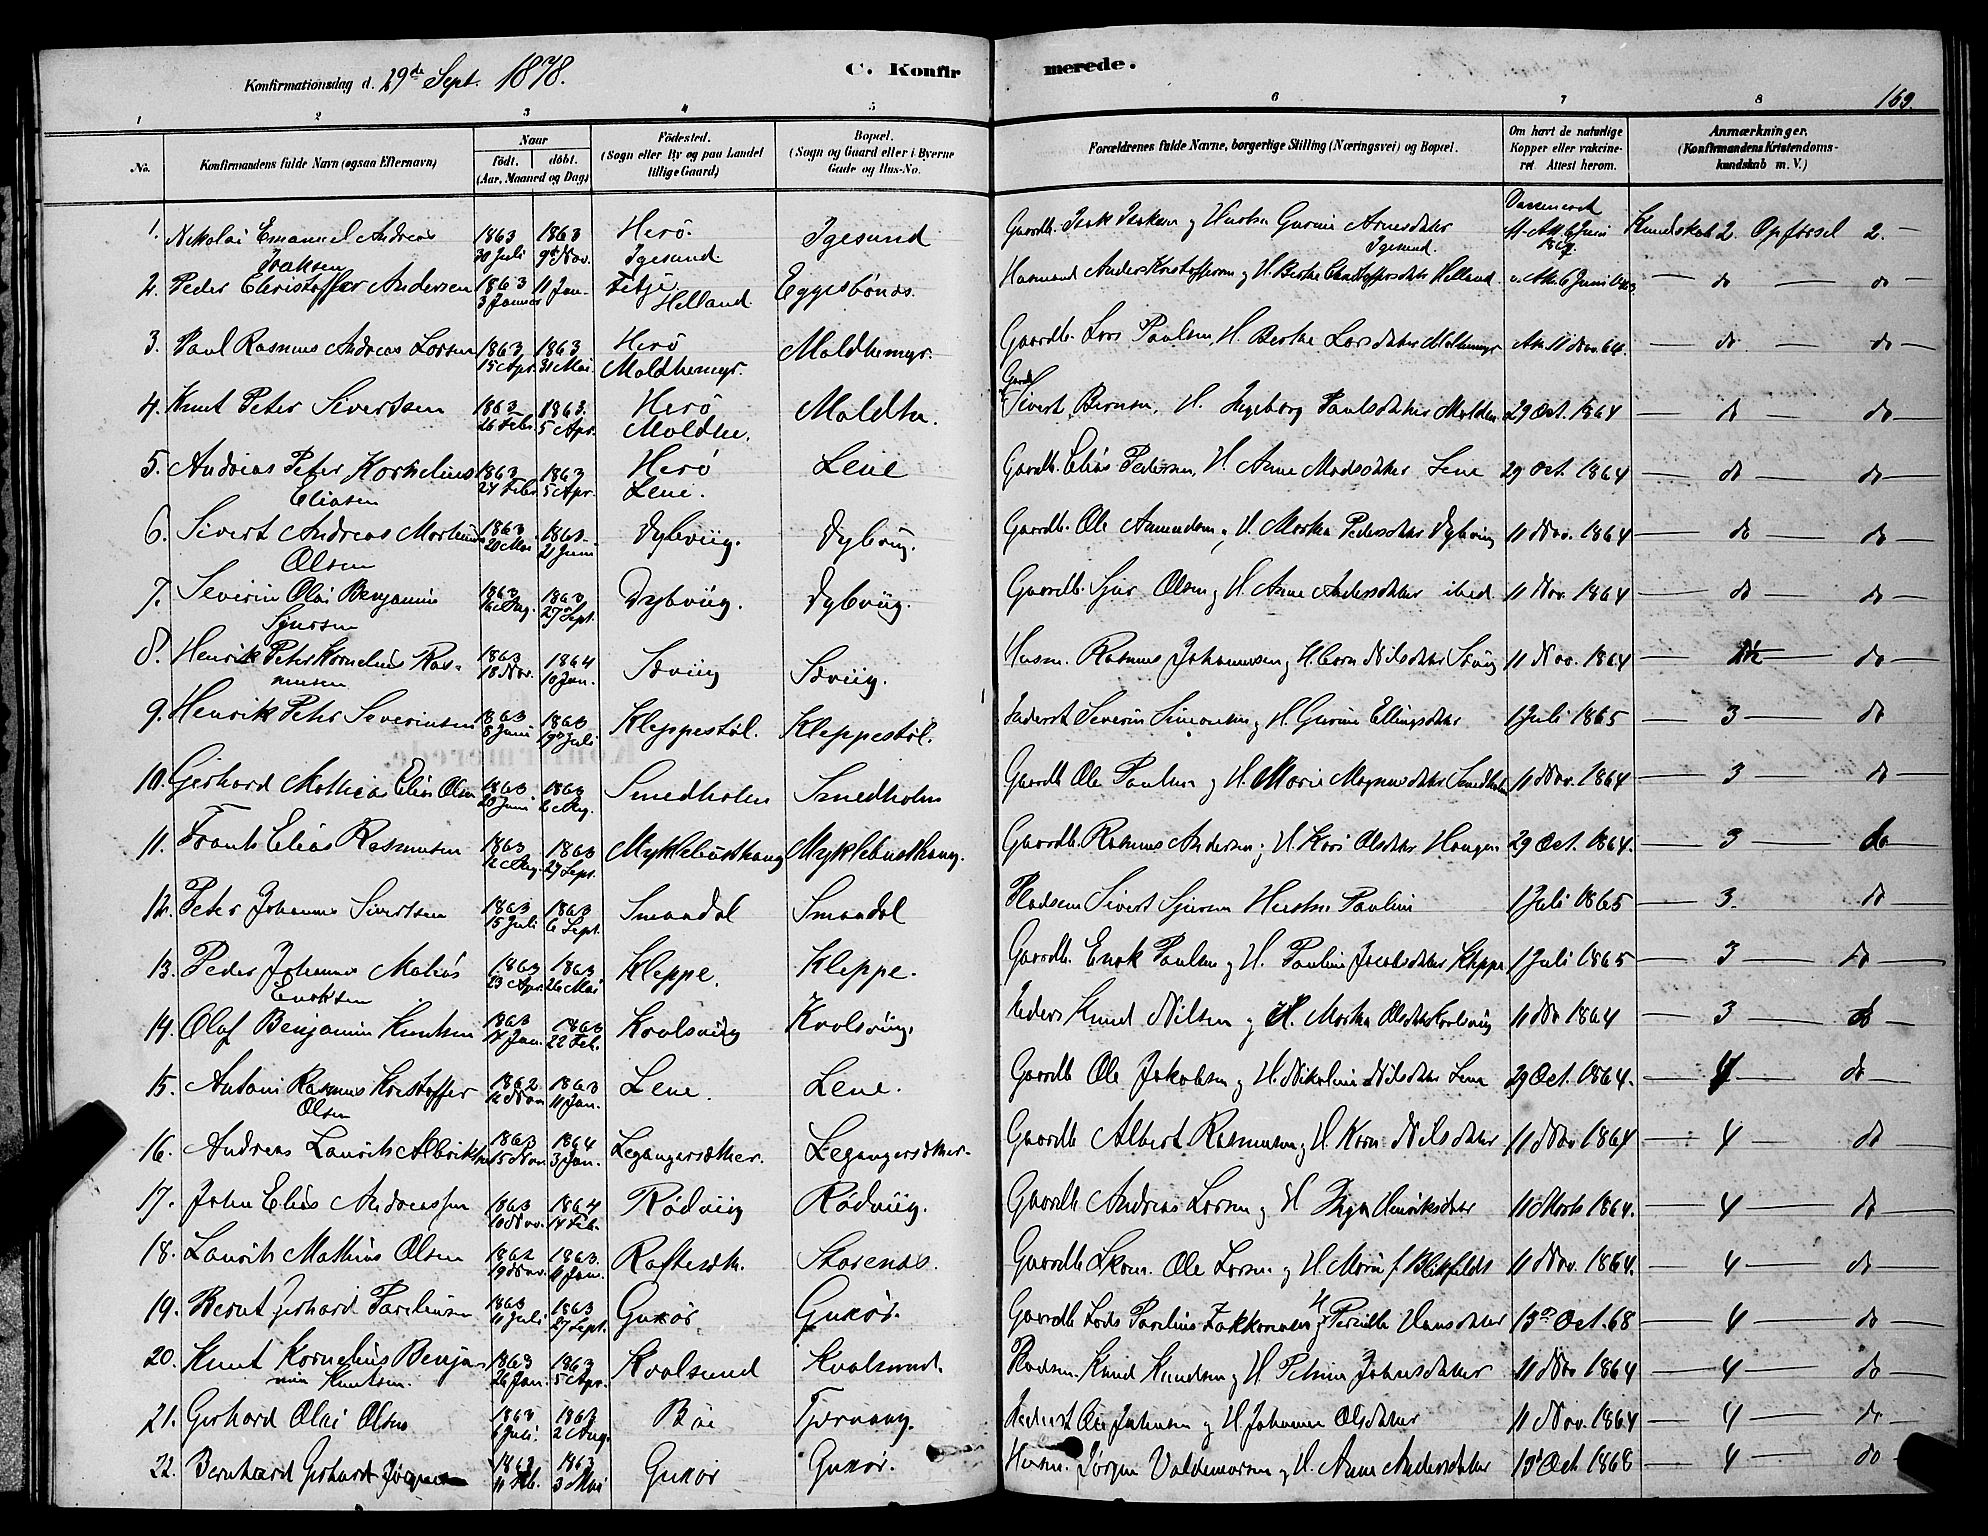 Konfirmationsdag d. 29de Sept. 1878.
C. Konfirmerede.
169.
1 2 3 4 5 6 7 8
No.
Konfirmandens fulde Navn (ogsaa Efternavn)
Naar
födt. döbt.
(Aar, Maaned og Dag)
Födested.
(Sogn eller By og paa Landet
tillige Gaard)
Bopæl.
(Sogn og Gaard eller i Byerne
Gade og Hus-No.
Forældrenes fulde Navne, borgerlige Stilling (Næringsvei) og Bopæl.
Om havt de naturlige
Kopper eller vakcine-
ret. Attest herom.
Anmærkninger.
(Konfirmandens Kristendoms-
kundskab m. V.)
1. Nikolai Emanuel Andreas Isaksen 1863 Juli 1863 9de Nov. Herö. Igesund Igesund Gaardb. Isak Isaksen og Hustru Gurine Arnesdatter Igesund Vaccineret Att. 6 Juni Kundskab 2. Opförsel 2. —
2. Peder Christoffer Andersen 1863 3 Januar 11 Jan. Helland Eggesbönes. Husmand Anders Kristoffersen og H. Berthe Christoffersdatter Helland. Att. 6 Juni — do — do —
3. Paul Rasmus Andreas Larsen 1863 15 Apr. 1863 31 Mai. Herö Moldhemyr. Moldhemyr. Gaardb. Lars Paulsen, H. Berthe Larsdatter Moldhemyr Att. 11 Nov. 64. — do — do —
4. Knut Peter Sivertsen 1863 26 Febr. 1863. 5 Apr. Herö Moldhe. Moldhe. Gaardb Sivert Berntsen, H. Ingeborg Paulsdatter Moldhe 29 Oct. 1864 — do — do —
5. Andreas Peter Kornelius Eliasen 1863 24 Febr. 1863 5 Apr. Herö Leine. Leine Gaardb. Elias Pedersen, H. Anne Madsdatter Leine 29 Oct. 1864 — do — do —
6. Sivert Andreas Martinus Olsen 1863 20 Mai 1863. 21 Juni Dybviig. Dybviig. Gaardb. Ole Amundsen, H. Martha Pedersdatter Dybviig 11 Nov. 1864 — do — do —
7. Severin Olai Benjamin Sjursen 1863 16 Aug. 1863. 27 Sept. Dybviig. Dybviig. Gaardb. Sjur Olsen og H. Anne Andersdatter ibid 11 Nov. 1864 — do — do —
8. Henrik Peter Kornelius Rasmusen 1863 18 Nov. 1864 10 Jan. Sæviig Sæviig. Husm. Rasmus Johannesen og H. Nilsdatter Sæviig 11 Nov. 1864 — do —
9. Henrik Peter Severinsen 1863 8 Juni 1863 19de Juli Kleppestöl. Kleppestöl. Inderst Severin Simonsen og H. Gurine Ellingsdatter 1 Juli 1865 — 3 — do
10. Gerhard Mathias Elias Olsen 1863 20 Juni 1863 2 Aug. Smedholm Smedholm Gaardb Ole Paulsen og H. Marie Magnusdatter Smedholm 11 Nov. 1864 — 3 — do
11. Frants Elias Rasmusen 1863 12 Aug. 1863 27 Sept. Myklebusthaug Myklebusthaug. Gaardb. Rasmus Andersen og H. Kari Olsdatter Haugen 29 Oct. 1864. — 3 — do —
12. Peter Johannes Sivertsen 1863 15 Juli 1863 6 Sept. Smaadal Smaadal Pladsem Sivert Sjursen Hustru Pauline 1 Juli 1865 — 3. — do —
13. Peder Johannes Matias Enoksen 1863 23 Apr. 1863 26 Mai Kleppe. Kleppe. Gaardb. Enok Paulsen og H. Pauline Jacobsdatter Kleppe 1 Juli 1865 — 3 — do —
14. Olaf Benjamin Knutsen 1863 17 Jan. 1863 22 Feb. Kvalsviig Kvalsviig. Inders Knud Nilsen og H. Martha Olsdatter Kvalsviig 11 Nov 1864 — 3 — do —
15. Antoni Rasmus Kristoffer Olsen 1862 12 Nov 1863 11 Jan. Leine. Leine. Gaardb Ole Jakobsen og H. Nikoline Nilsdatter Leine 29 Oct. 1864. — 4 — do —
16. Andreas Laurits Albriktsen 1863 15 Nov. 1864 3 Jan. Legangersæther. Legangersæther. Gaardb Albert Rasmusen og H. Karen Nilsdatter 11 Nov 1864 — 4 — do
17. John Elias Andreassen 1863 10 Nov. 1864 14 Feb. Rödviig Rödviig. Gaardb Andreas Larsen og H Inga Henriksdatter 11 Marts 1864. — 4 — do —
18. Laurits Mathias Olsen 1862 19 Nov. 1863. 11 Jan. Raftesæth. Storenæs. Gaardb Skom. Ole Larsen og H. Marie f. Blikfeldt 11 Nov. 1864. — 4 — do —
19. Bernt Gerhard Paulinusen 1863 11 Juli 1863 27 Sept. Gurskö Gurskö. Gaardb Lods Paulinus Zakkariasen og H Pernille Hansdatter 13de Oct. 68 — 4 — do —
20. Knut Kornelius Benjamin Knutsen. 1863 26 Jan. 1863 5 Apr. Kvalsund Kvalsund. Pladsm. Knud Knudsen og H Petrine Johnsdatter 11 Nov 1864 — 4 — do
21. Gerhard Olai Olsen 1863 6 Juli. 1863 2 Aug. Böe Tjörvaag. Inderst Ole Johnsen og H Johanne Olsdatter 11 Nov. 1864 — 4 — do —
22. Bernhard Gerhard Jörgensen 1863 11 Feb. 1863 3 Mai Gurskö Gurskö. Husm. Jörgen Valdemarsen og H. Anne Andersdatter 13de Oct 1868 — 4 — do —